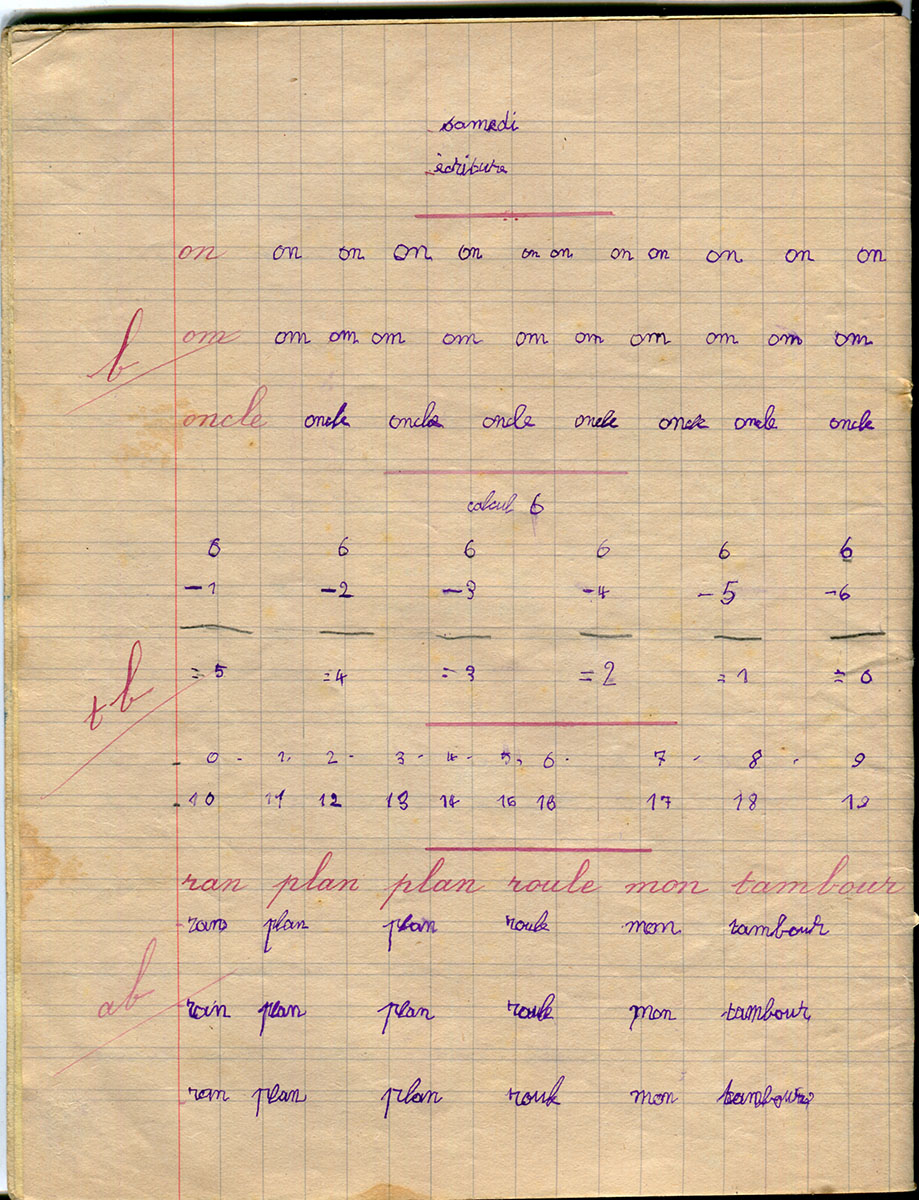 samedi
écriture
on on on on on on on on on on on on
b om om om om om om om om om om
oncle oncle oncle oncle oncle oncle oncle oncle
calcul 6
6 6 6 6 6 6
-1 -2 -3 -4 -5 -6
tb = 5 = 4 = 3 = 2 = 1 = 0
0 - 1. 2 - 3 - 4 - 5, 6 - 7 - 8 - 9
10 11 12 13 14 15 16 17 18 19
ran plan plan roule mon tambour
ran plan plan roule mon tambour
ab ran plan plan roule mon tambour
ran plan plan roule mon tambour